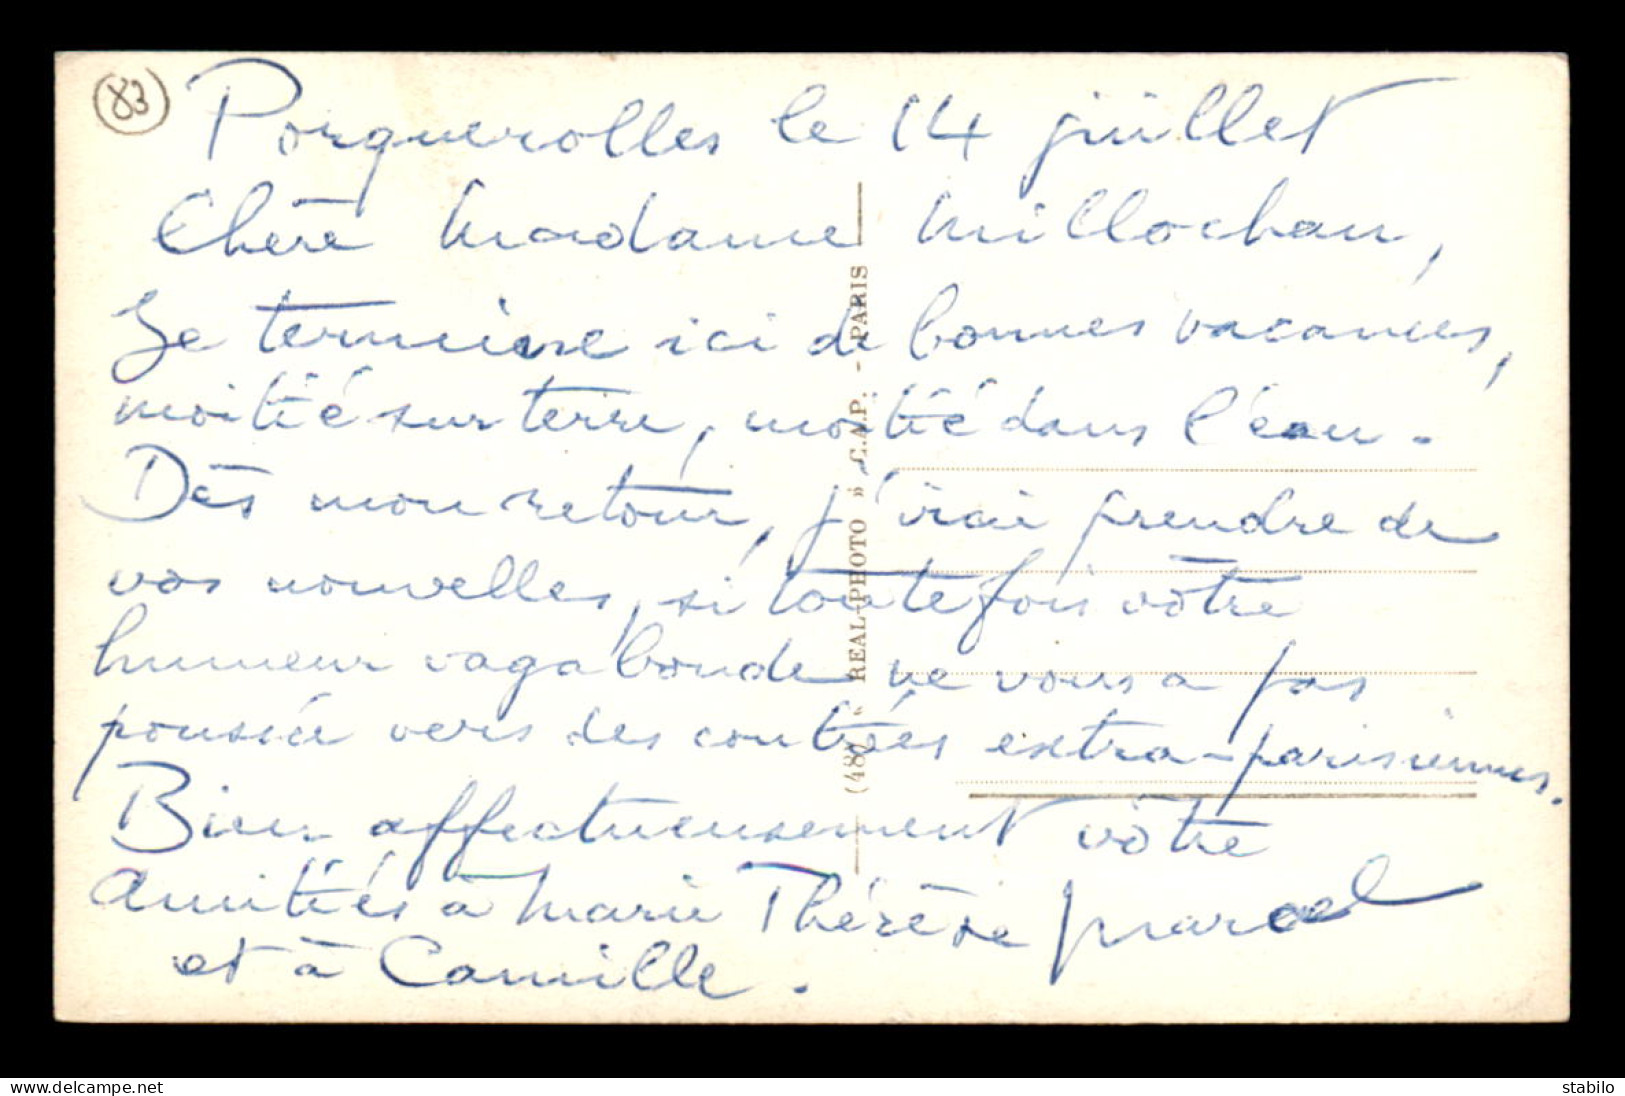 83
Porquerolles le 14 juillet
Chère Madame Millochau,
Je termine ici de bonnes vacances,
moitié sur terre, moitié dans l'eau.
Dès mon retour, j'irai prendre de
vos nouvelles, si toutefois vôtre
humeur vagabonde ne vous a pas
poussée vers des contrées extra-parisiennes.
Bien affectueusement vôtre
Amitiés à Marie Thérèse Marcel
et à Camille.
REAL-PHOTO » C.A.P. - PARIS
delcampe.net
stabilo